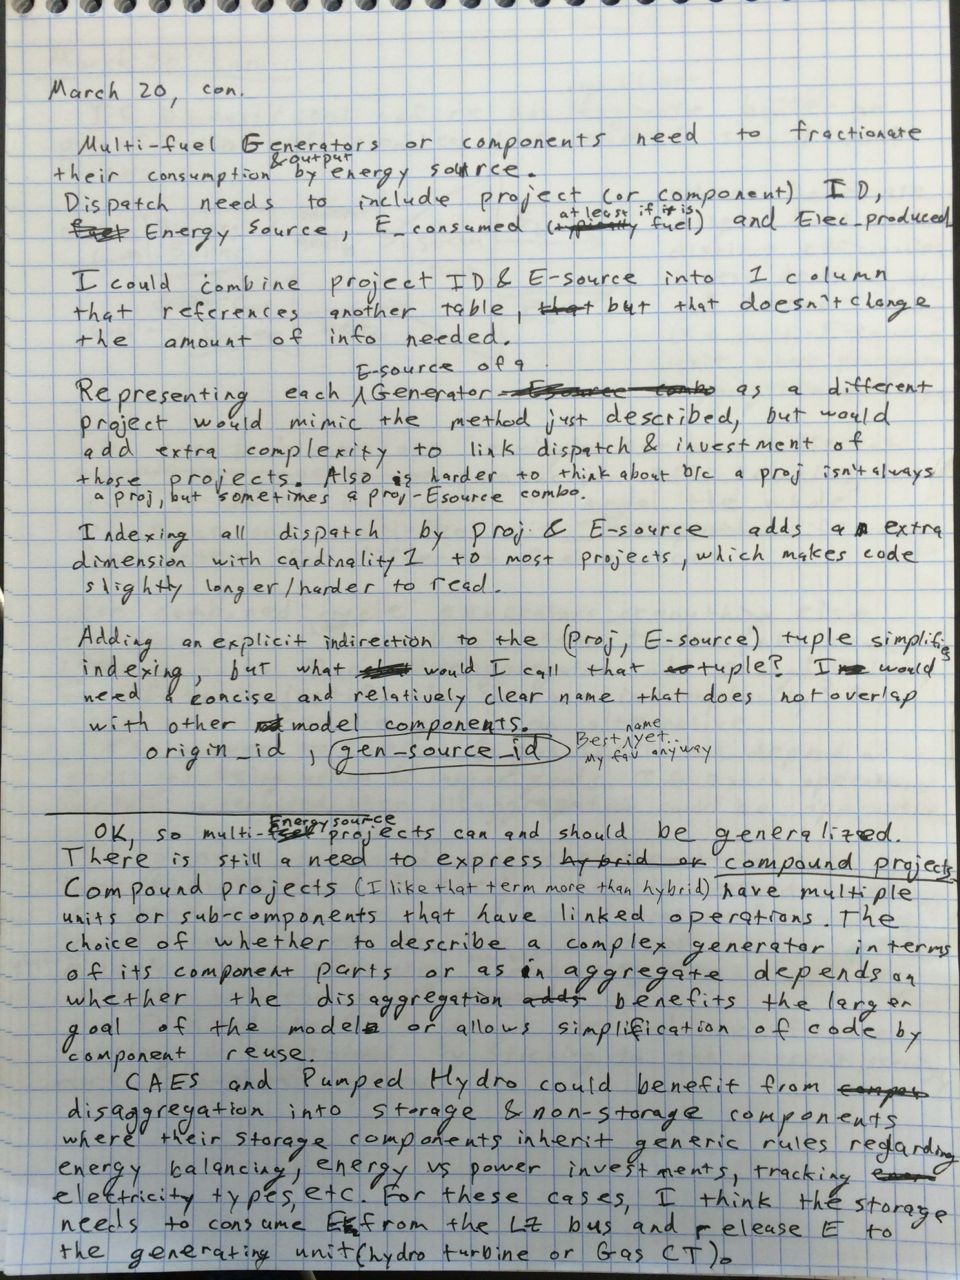 March 20, con.
Multi-fuel Generators or components need to fractionate
their consumption & output by energy source.
Dispatch needs to include project (or component) ID,
Energy Source, E_consumed (at least if it is fuel) and Elec_produced
I could combine project ID & E-source into 1 column
that references another table, but that doesn't change
the amount of info needed.
Representing each E-source of a Generator as a different
project would mimic the method just described, but would
add extra complexity to link dispatch & investment of
those projects. Also is harder to think about b/c a proj isn't always
a proj, but sometimes a proj-Esource combo.
Indexing all dispatch by proj & E-source adds a extra
dimension with cardinality 1 to most projects, which makes code
slightly longer/harder to read.
Adding an explicit indirection to the (proj, E-source) tuple simplifies
indexing, but what would I call that tuple? I would
need a concise and relatively clear name that does not overlap
with other model components.
origin_id, gen-source_id Best name yet..
my fav anyway
OK, so multi-Energy source projects can and should be generalized.
There is still a need to express compound projects.
Compound projects (I like that term more than hybrid) have multiple
units or sub-components that have linked operations. The
choice of whether to describe a complex generator in terms
of its component parts or as in aggregate depends on
whether the disaggregation benefits the larger
goal of the model or allows simplification of code by
component reuse.
CAES and Pumped Hydro could benefit from
disaggregation into storage & non-storage components
where their storage components inherit generic rules regarding
energy balancing, energy vs power investments, tracking
electricity types, etc. For these cases, I think the storage
needs to consume E from the LZ bus and release E to
the generating unit (hydro turbine or Gas CT).